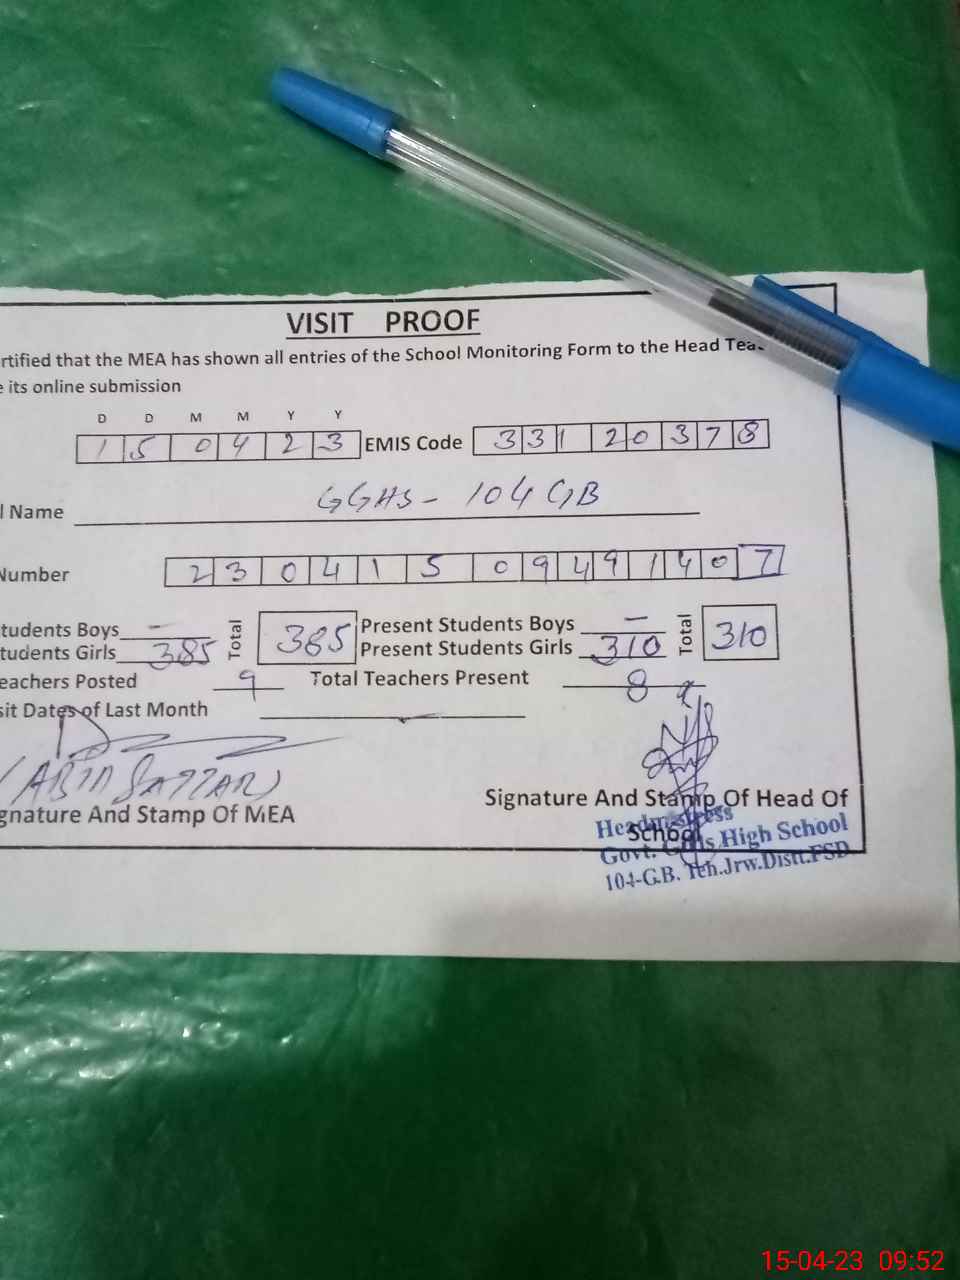 VISIT PROOF
rtified that the MEA has shown all entries of the School Monitoring Form to the Head Tea
e its online submission
D D M M Y Y
1 5 0 4 2 3 EMIS Code 3 3 1 2 0 3 7 8
l Name GGHS - 104 GB
Number 2 3 0 4 1 5 0 9 4 9 1 4 0 7
tudents Boys - Total 385 Present Students Boys - Total 310
tudents Girls 385 Present Students Girls 310
eachers Posted 9 Total Teachers Present 8
sit Dates of Last Month
(ABID SATTAR)
gnature And Stamp Of MEA
Signature And Stamp Of Head Of
School
Headmistress
Govt. Girls High School
104-G.B. Teh.Jrw.Distt.FSD
15-04-23 09:52